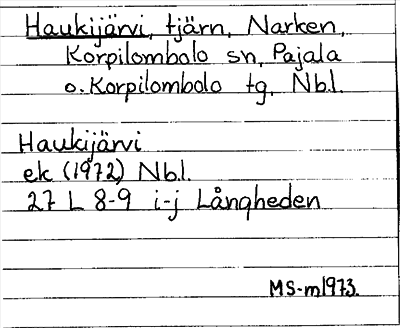 Haukijärvi, tjärn, Narken,
Korpilombolo sn, Pajala
o. Korpilombolo tg, Nb.l.
Haukijärvi
ek (1972) Nb.l.
27 L 8-9 i-j Långheden
MS-m1973.